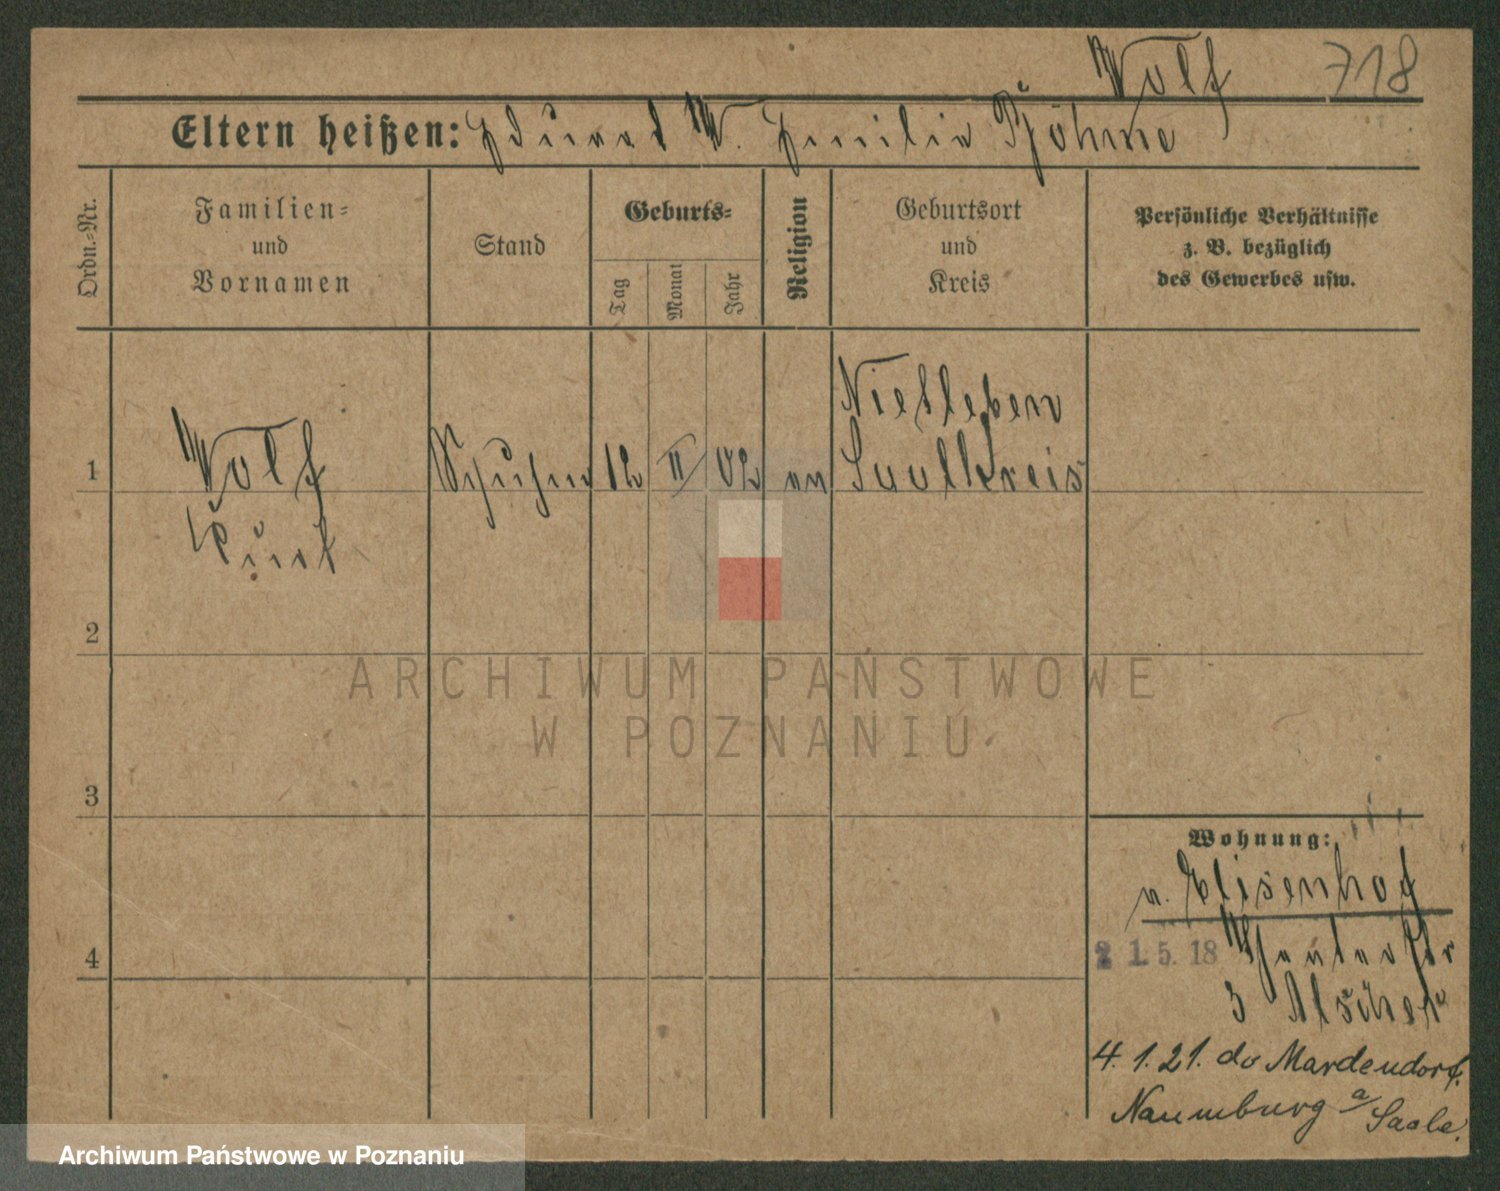 Wolf 718
Eltern heißen: Eduard W. Emilie Böhme
Ordn.-Nr.
Familien-
und
Vornamen
Stand
Geburts-
Tag
Monat
Jahr
Religion
Geburtsort
und
Kreis
Persönliche Verhältnisse
z. B. bezüglich
des Gewerbes usw.
Nietleben
1 Wolf Schuhm 12 II 02 ev Saalkreis
Kurt
2
3
4
ARCHIWUM PAŃSTWOWE
W POZNANIU
Wohnung:
n. Elisenhof
21.5.18
3
4.1.21. do Mardendorf.
Naumburg a/Saale.
Archiwum Państwowe w Poznaniu